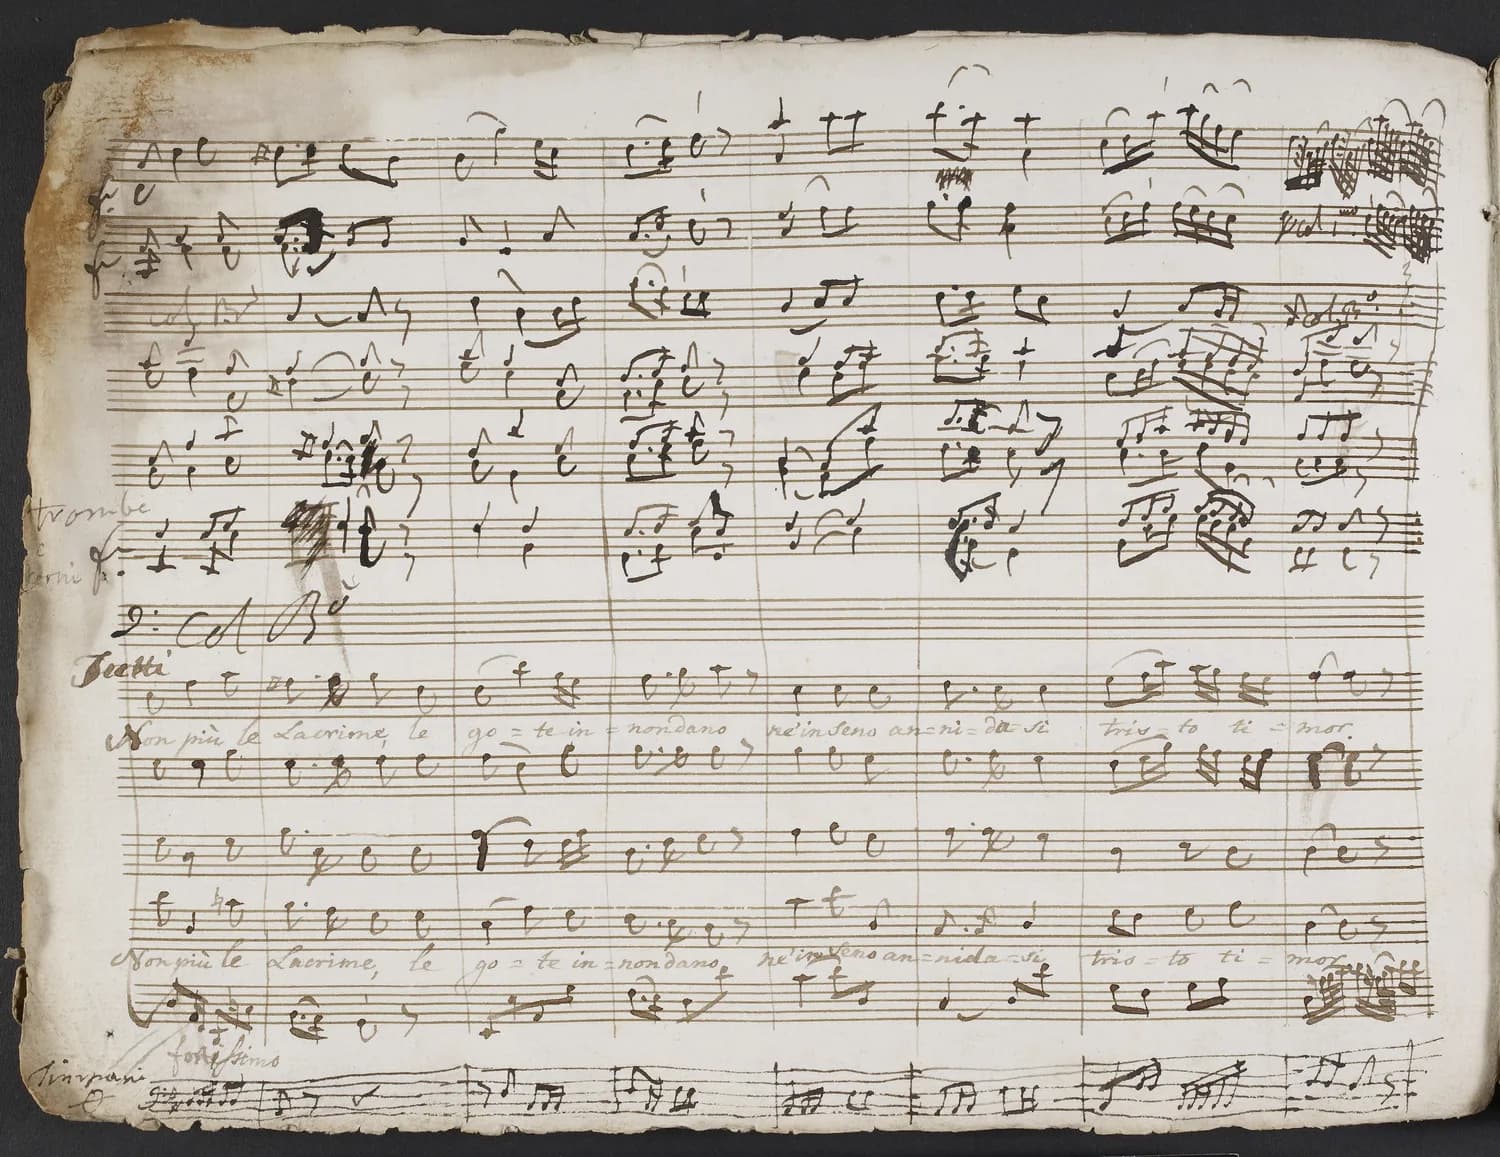 f.
f.
Col B
pcol 1mo
Col Bo
trombe
Corni f.
Col Bo
Tutti
Non più le Lacrime, le go = te in = nondano nè in seno an = ni = da = si tris = to ti = mor.
Non più le Lacrime, le go = te in = nondano, nè in seno an = nida = si tris = to ti = mor
fortissimo
Timpani